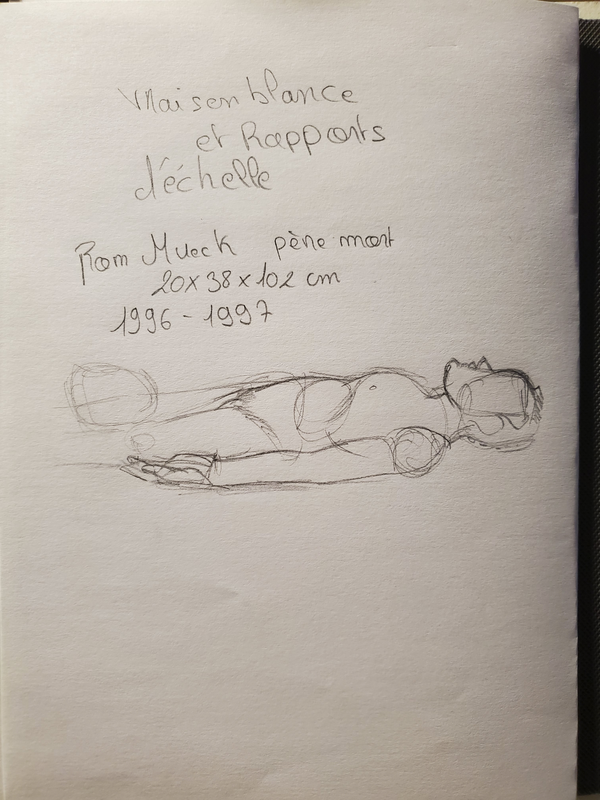 Vraisemblance
et Rapports
d'échelle
Rom Mueck père mort
20x38x102 cm
1996-1997